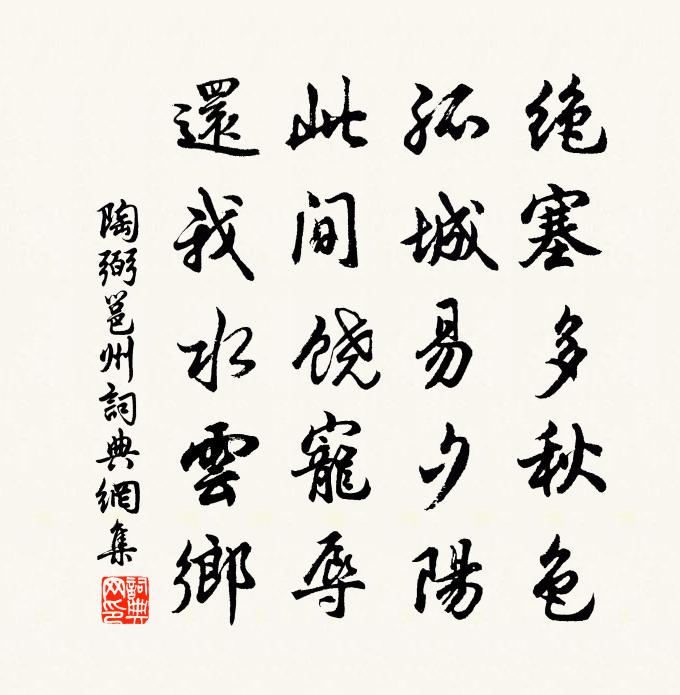 绝塞多秋色
孤城易夕陽
此间饶寵辱
還我水雲鄉
陶弼邕州詞典網集
詞典网印